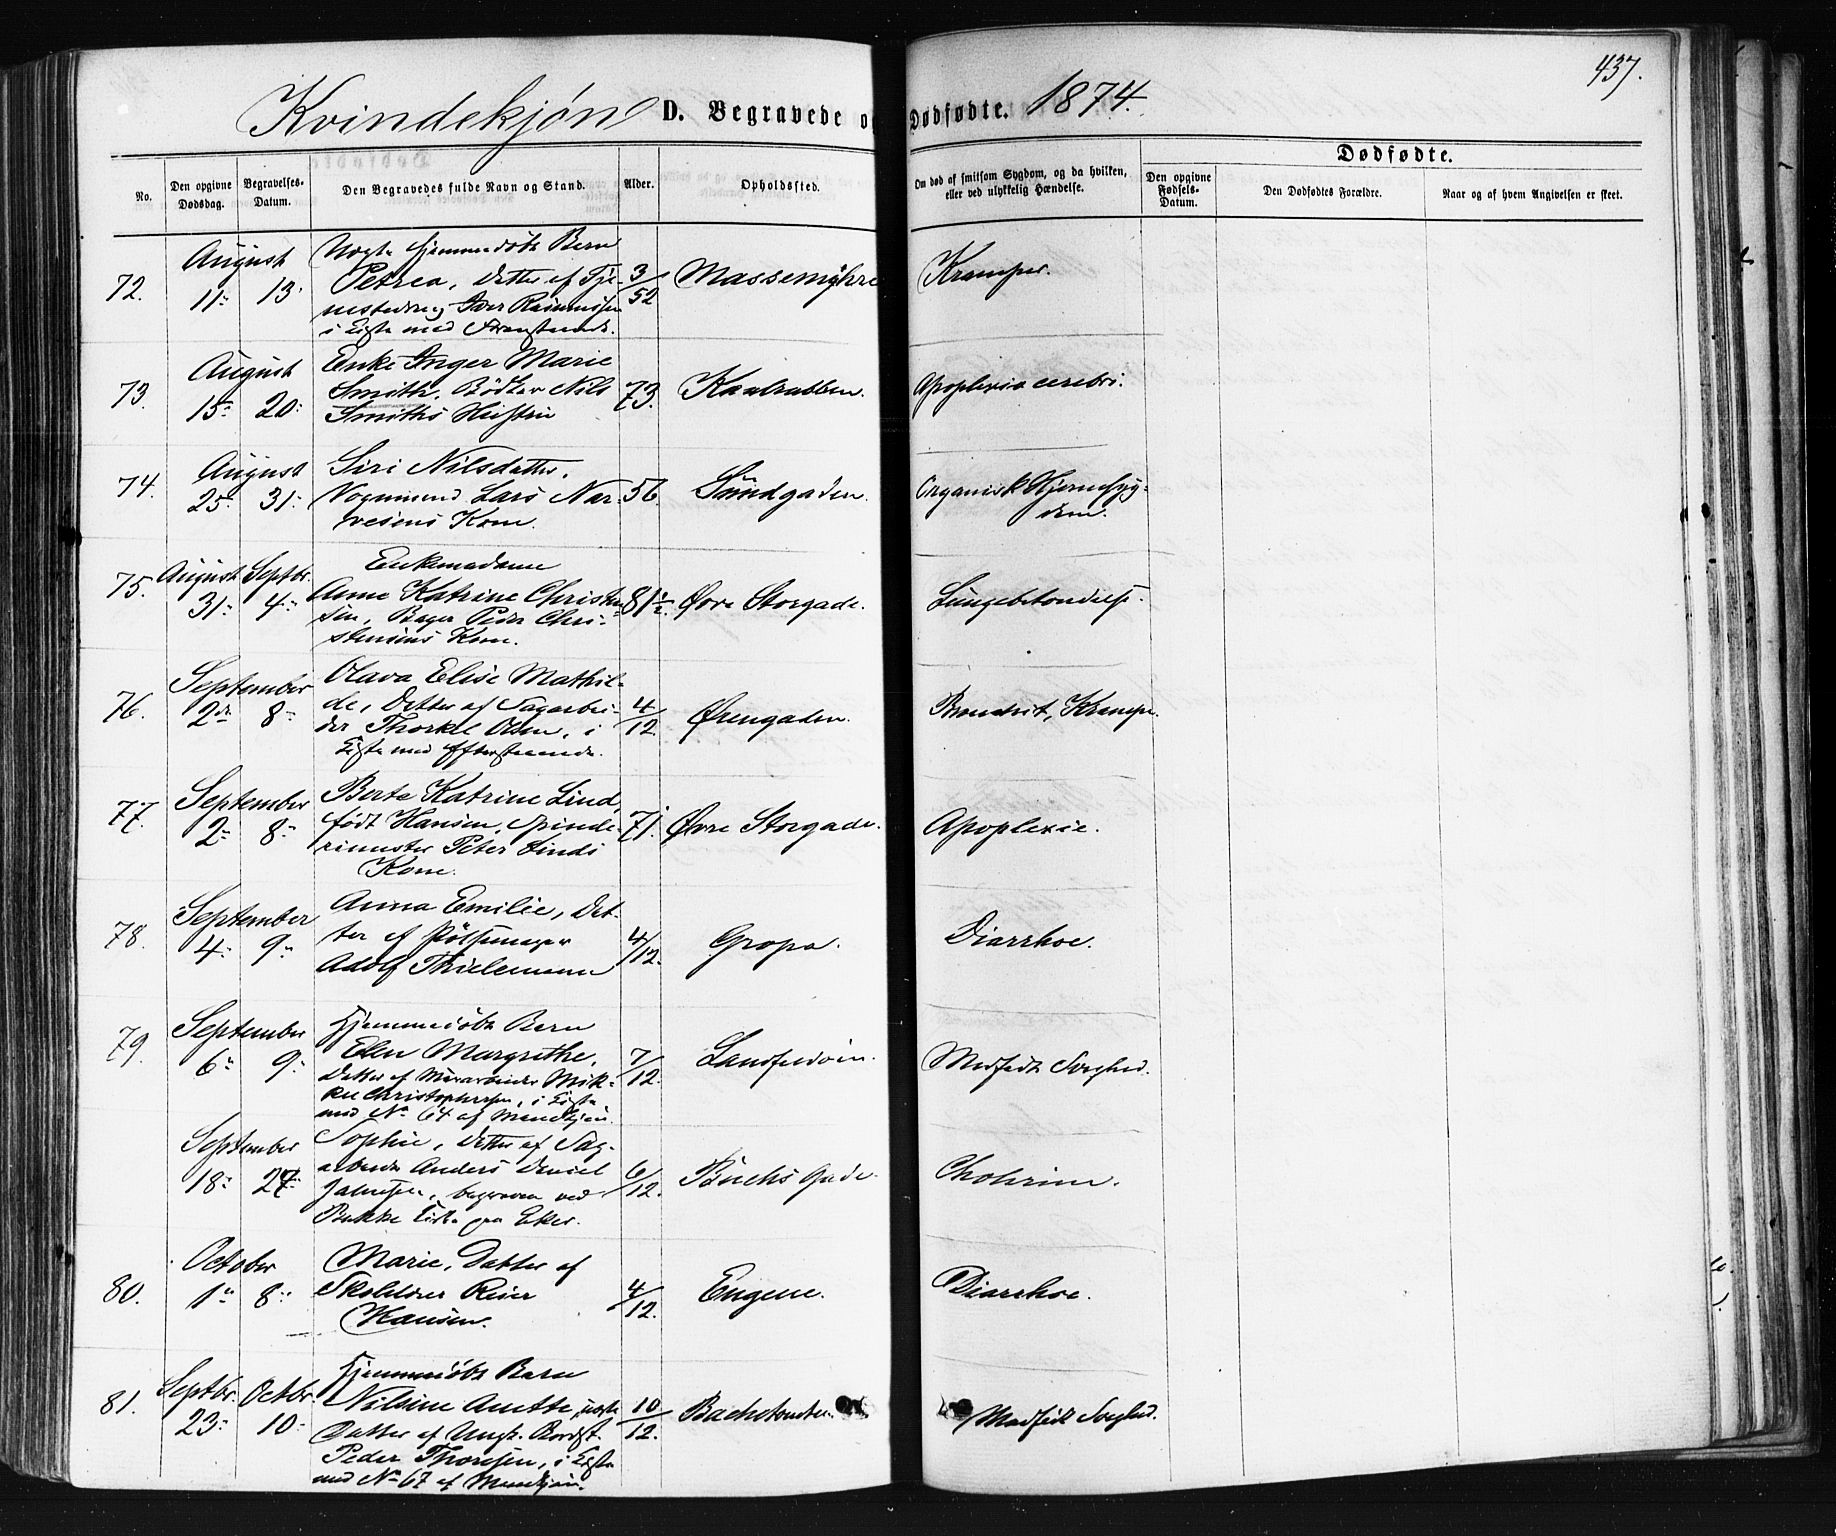 437.
Kvindekjøn D. Begravede og Dødfødte. 1874.
No.
Den opgivne Dødsdag.
Begravelses-Datum.
Den Begravedes fulde Navn og Stand.
Alder.
Opholdssted.
Om død af smitsom Sygdom, og da hvilken, eller ved ulykkelig Hændelse.
Dødfødte.
Den opgivne Fødsels-Datum.
Den Dødfødtes Forældre.
Naar og af hvem Angivelsen er skeet.
72. August 11 13
Uægte hjemmedøbt Barn
Petrea, Datter af Tje-
nestedreng Iver Rasmussen
i Kiste med
3/52 Massemyhre Kramper.
73. August 15 20
Enke Inger Marie
Smith, Bødker Nils
Smiths Hustru
73. Kaalrabben. Apoplexia cerebri.
74. August 25 31
Siri Nilsdatter,
Vognmand Lars Nar-
vesens Kone.
56. Sündgaden. Organisk Hjernesyg-
dom.
75. August 31 Septbr. 4
Enkemadame
Anne Katrine Christen-
sen, Bager Peder Chri-
stensens Kone.
81½. Øvre Storgade. Lungebetændelse.
76. September 2den 8
Olava Elise Mathil-
de, Datter af Sagarbei-
der Thorkel Olsen, i
Kiste med Efterstaaende.
4/12 Ørengaden. Bronchit, Krampe.
77. September 2 8
Berte Katrine Lind,
født Hansen, Spinde-
rimester Peter Linds
Kone.
71. Øvre Storgade. Apoplexie.
78. September 4 9
Anna Emilie, Dat-
ter af Pølsemager
Adolf Thielemann
4/12. Gropa. Diarrhoe.
79. September 6 9
Hjemmedøbt Barn
Elen Margrethe,
Datter af Murarbeider Mik-
kel Christophersen, i Kiste
med No 64 af Mandkjøn.
7/12. Landfaldøien. Medfødt Svaghed.
September 18 24
Sophie, Datter af Sag-
arbeider Anders Daniel
begraven ved
Bakke Kirke paa Eker.
6/12. Buchs Gade. Cholerine.
80. October 1 8
Marie, Datter af
Skolelærer Reier
Hansen.
4/12. Eugene. Diarrhoe.
81. Septbr. 23 Octbr. 10
Hjemmedøbt Barn
Nilsine Anette, uægte
Datter af Ungk. Bordst.
Peder Thoresen, i Kiste
med No 67 af Mandkjøn.
10/12. Bachetomten. Medfødt Svaghed.